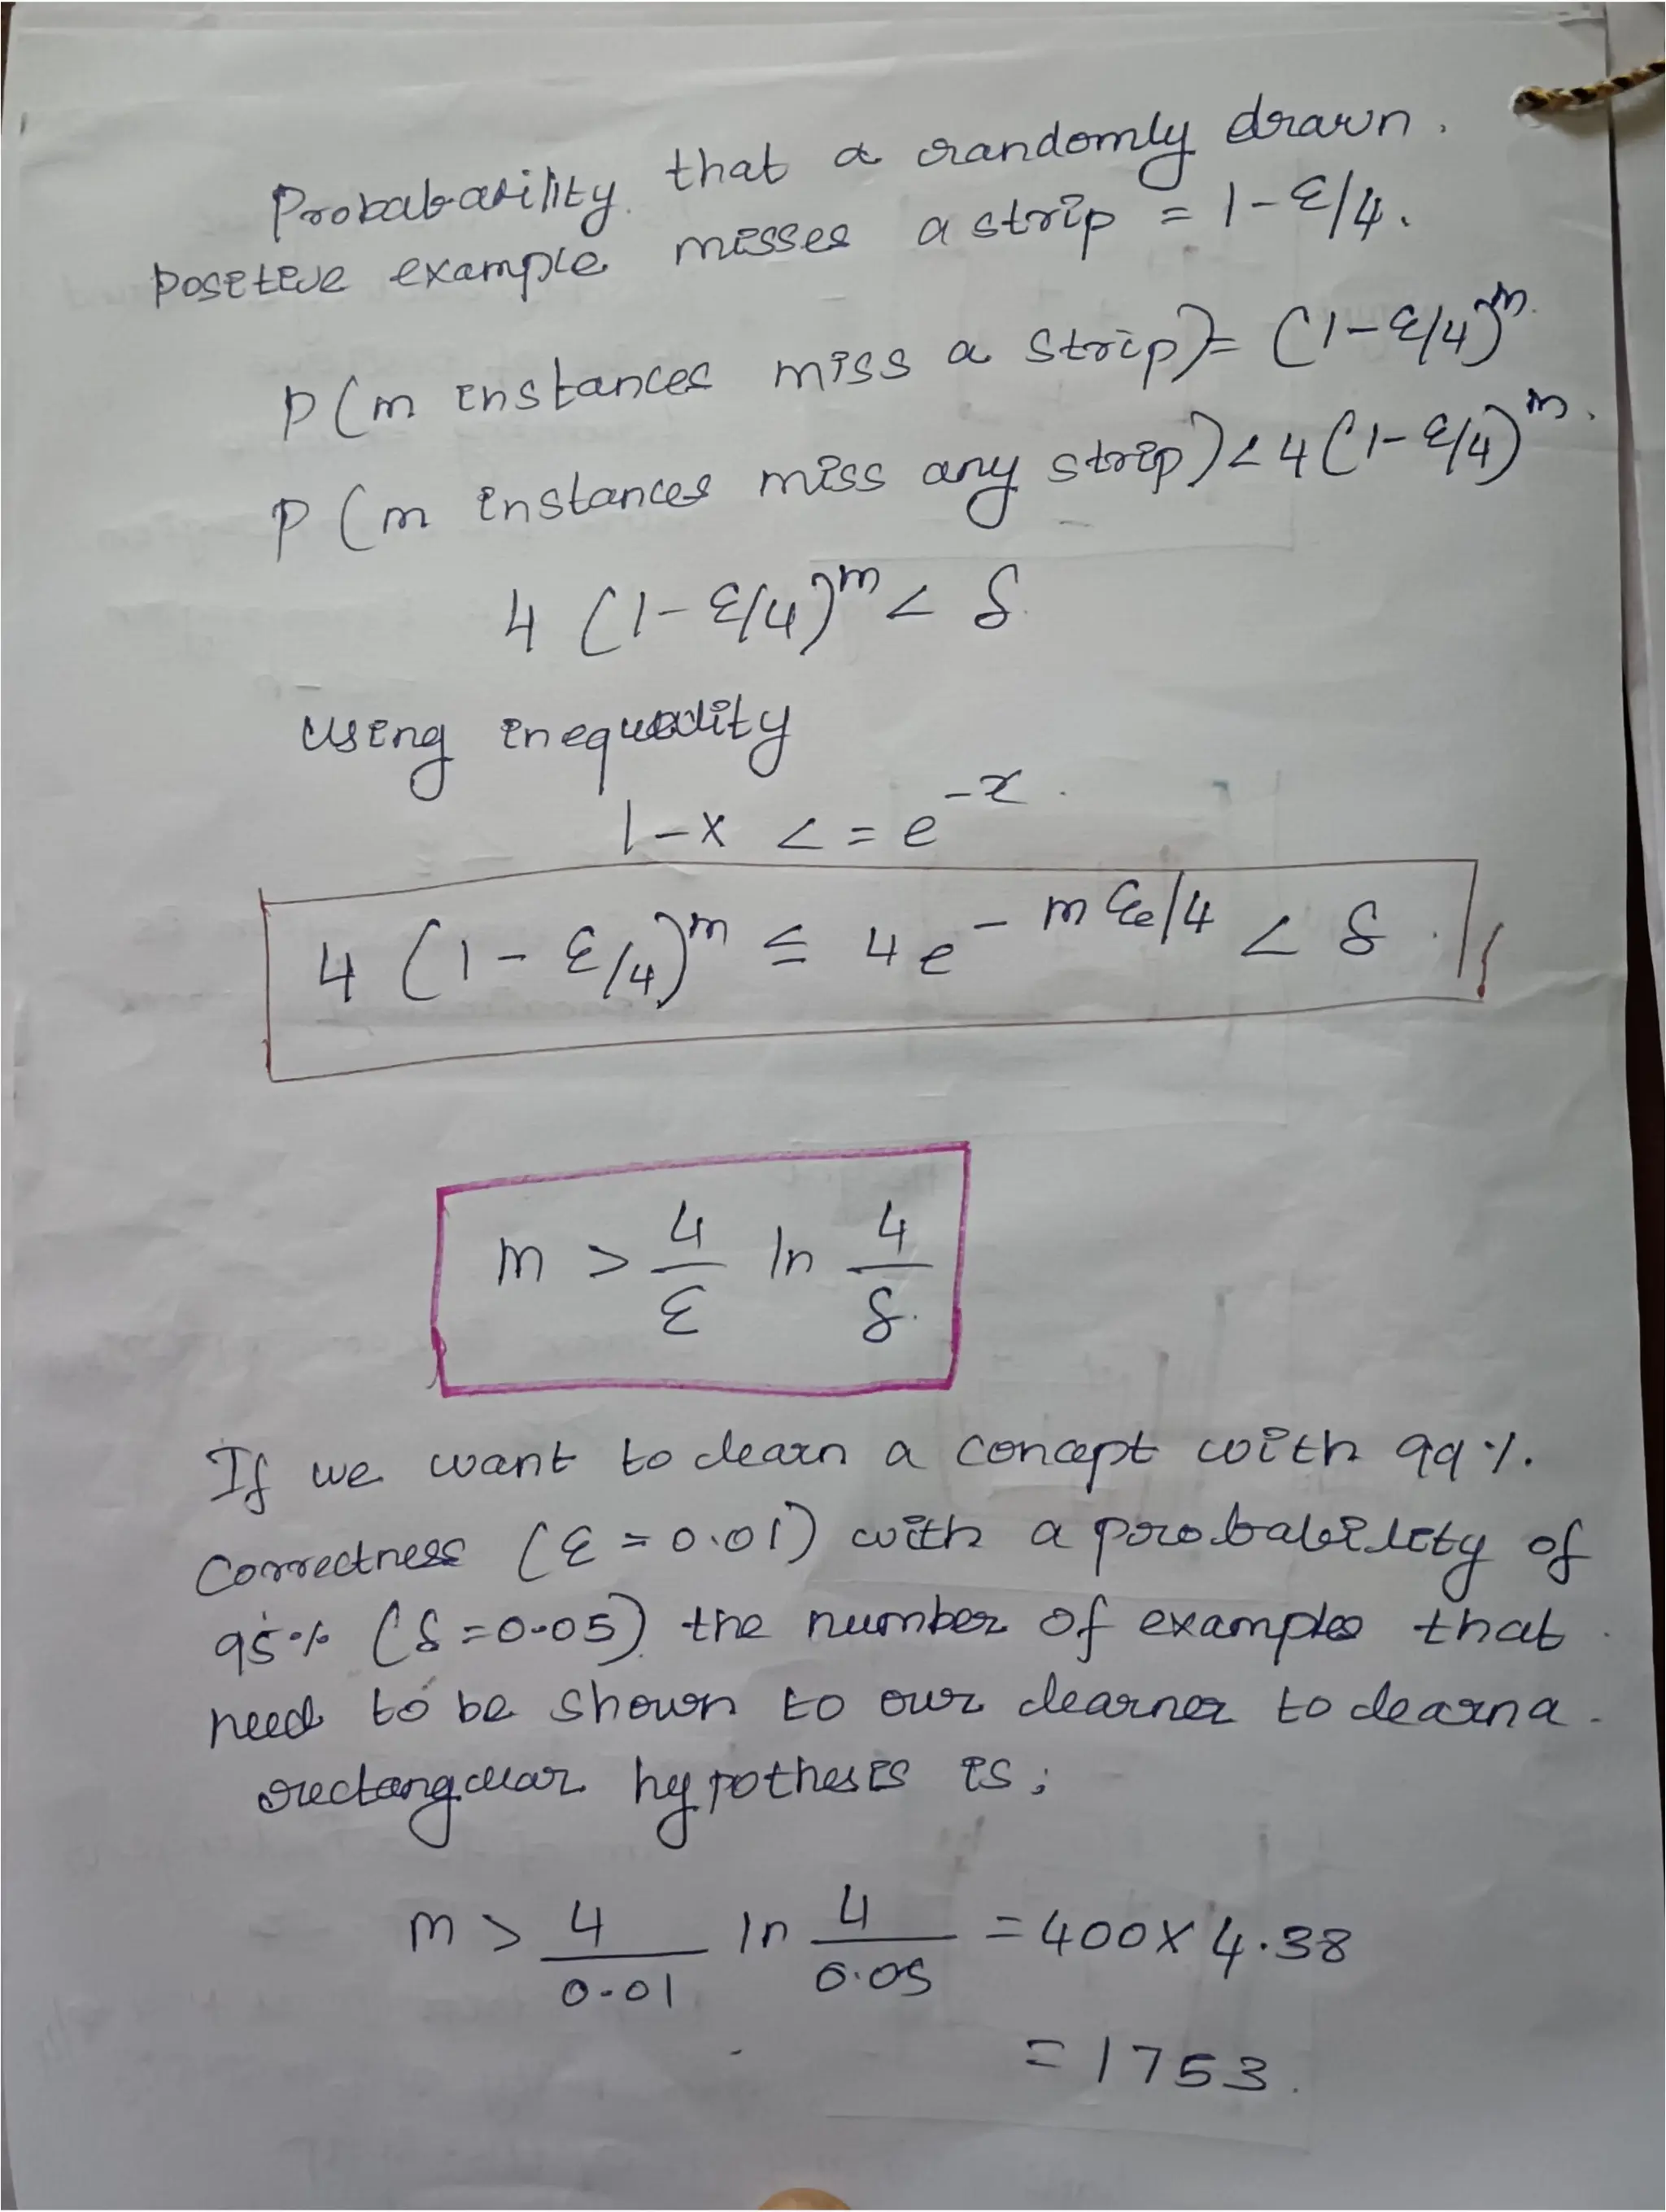 Probabability that a randomly drawn.
positive example misses a strip = 1 - ε/4.
P(m instances miss a strip) = (1 - ε/4)^m
P(m instances miss any strip) < 4(1 - ε/4)^m.
4 (1 - ε/4)^m < δ
Using inequality
1 - x <= e^-x.
4 (1 - ε/4)^m ≤ 4e^- mε/4 < δ.
m > 4/ε ln 4/δ.
If we want to learn a concept with 99%.
Correctness (ε = 0.01) with a probability of
95% (δ = 0.05) the number of examples that
need to be shown to our learner to learn a
rectangular hypothesis is;
m > 4/0.01 ln 4/0.05 = 400 x 4.38
= 1753.